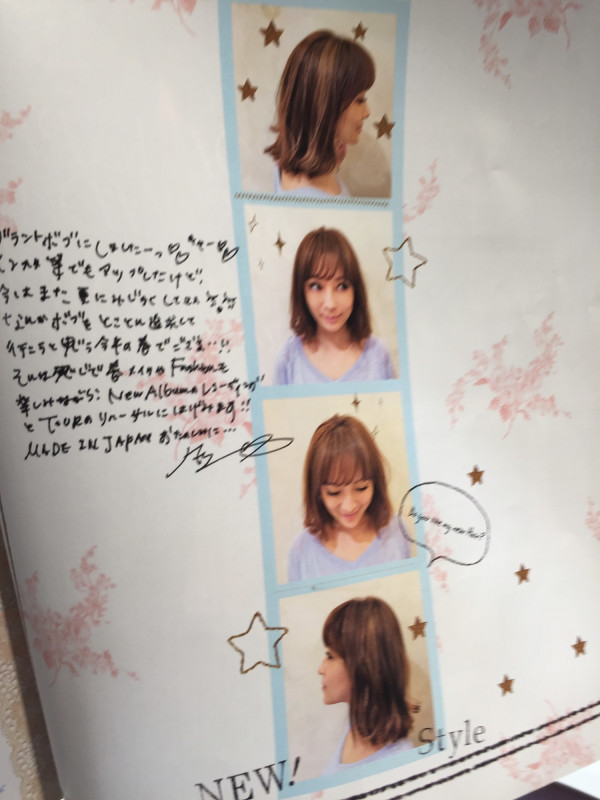 グラントボブにしましたーっ
でもアップしたけど、
今はまた更にみじかくしてます
なんかボブをとことん追求して
行こうと思う今年の春でござます…!!
そんな思いで春メイクやFashionを
楽しみながら、New Albumのレコーディング
とTOURのリハーサルにはげみます!!
MADE IN JAPAN おたのしみに…
Do you like my new Hair?
NEW!
Style